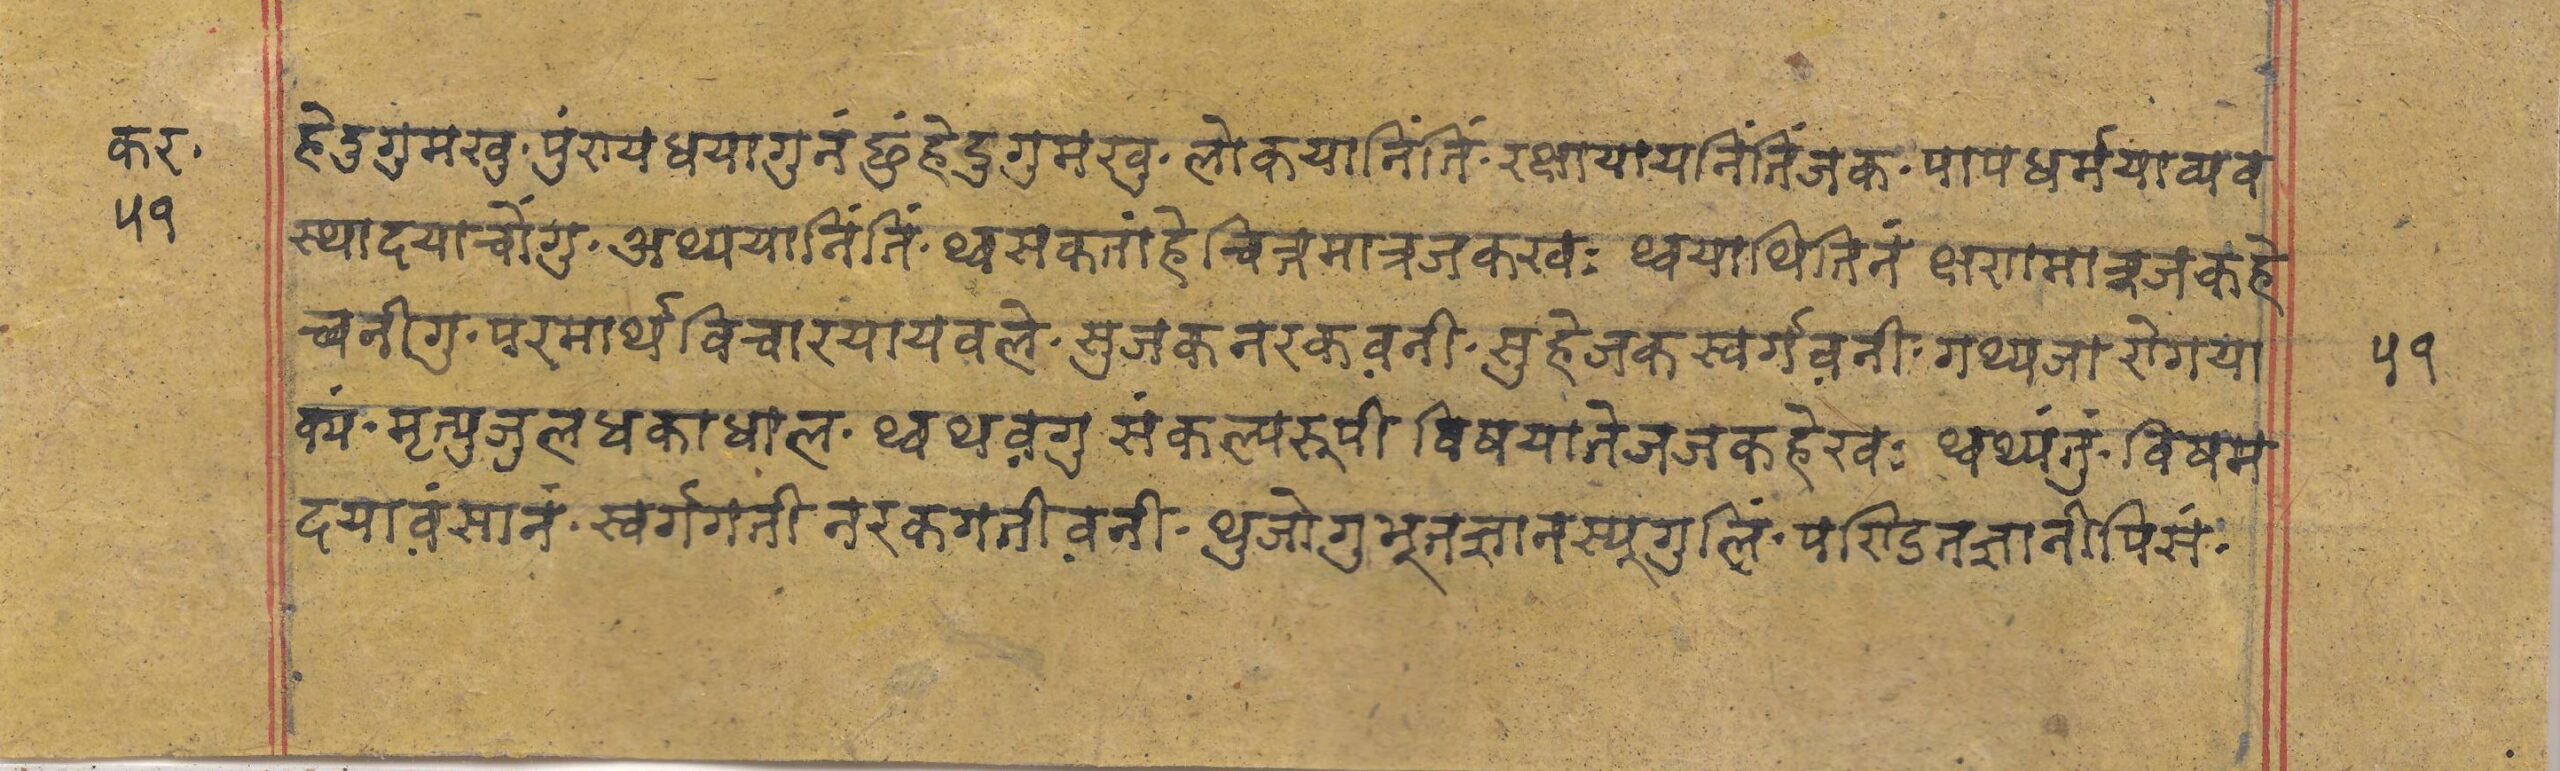 कर. हेदुगुमखु. पुंरायधयागुनं छुंहेदुगुमखु. लोकयानिंतिं. रक्षायायनिंतिंजक. पापधर्मयाव्यव
५१ स्थादयाचोंगु. अथ्ययानिंतिं. थ्वसकतांहेचित्तमात्रजकखः थ्वयाथितिनं क्षरामात्रजकहे
च्वनीगु. परमार्थविचारयायवले. सुजकनरकव़नी. सुहेजकस्वर्गव़नी. गथ्यजा रोगया ५१
क्यं. मृत्युजुलधकाधाल. थ्वथव़गु संकल्परूपी विषयातेजजकहेखः थ्वथ्यंतुं. विषम
दयाव़ंसानं. स्वर्गगती नरकगतीव़नी. थुजोगुभूतज्ञानस्यूगुलिं. परिाडतज्ञानीपिसं.